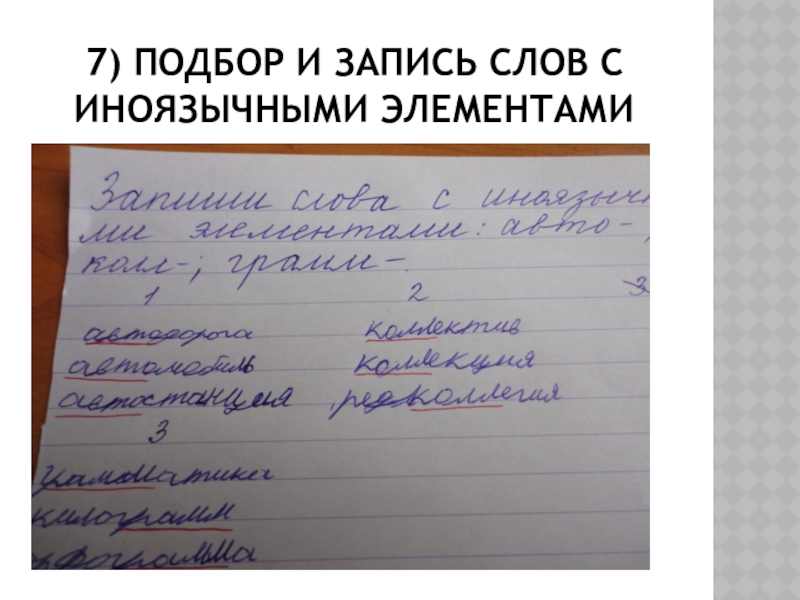 7) ПОДБОР И ЗАПИСЬ СЛОВ С
ИНОЯЗЫЧНЫМИ ЭЛЕМЕНТАМИ
Запиши слова с иноязычн
ми элементами: авто-,
колл-; грамм-.
1 2 3
автодорога коллектив
автомобиль коллекция
автостанция редколлегия
3
грамматика
килограмм
орфограмма